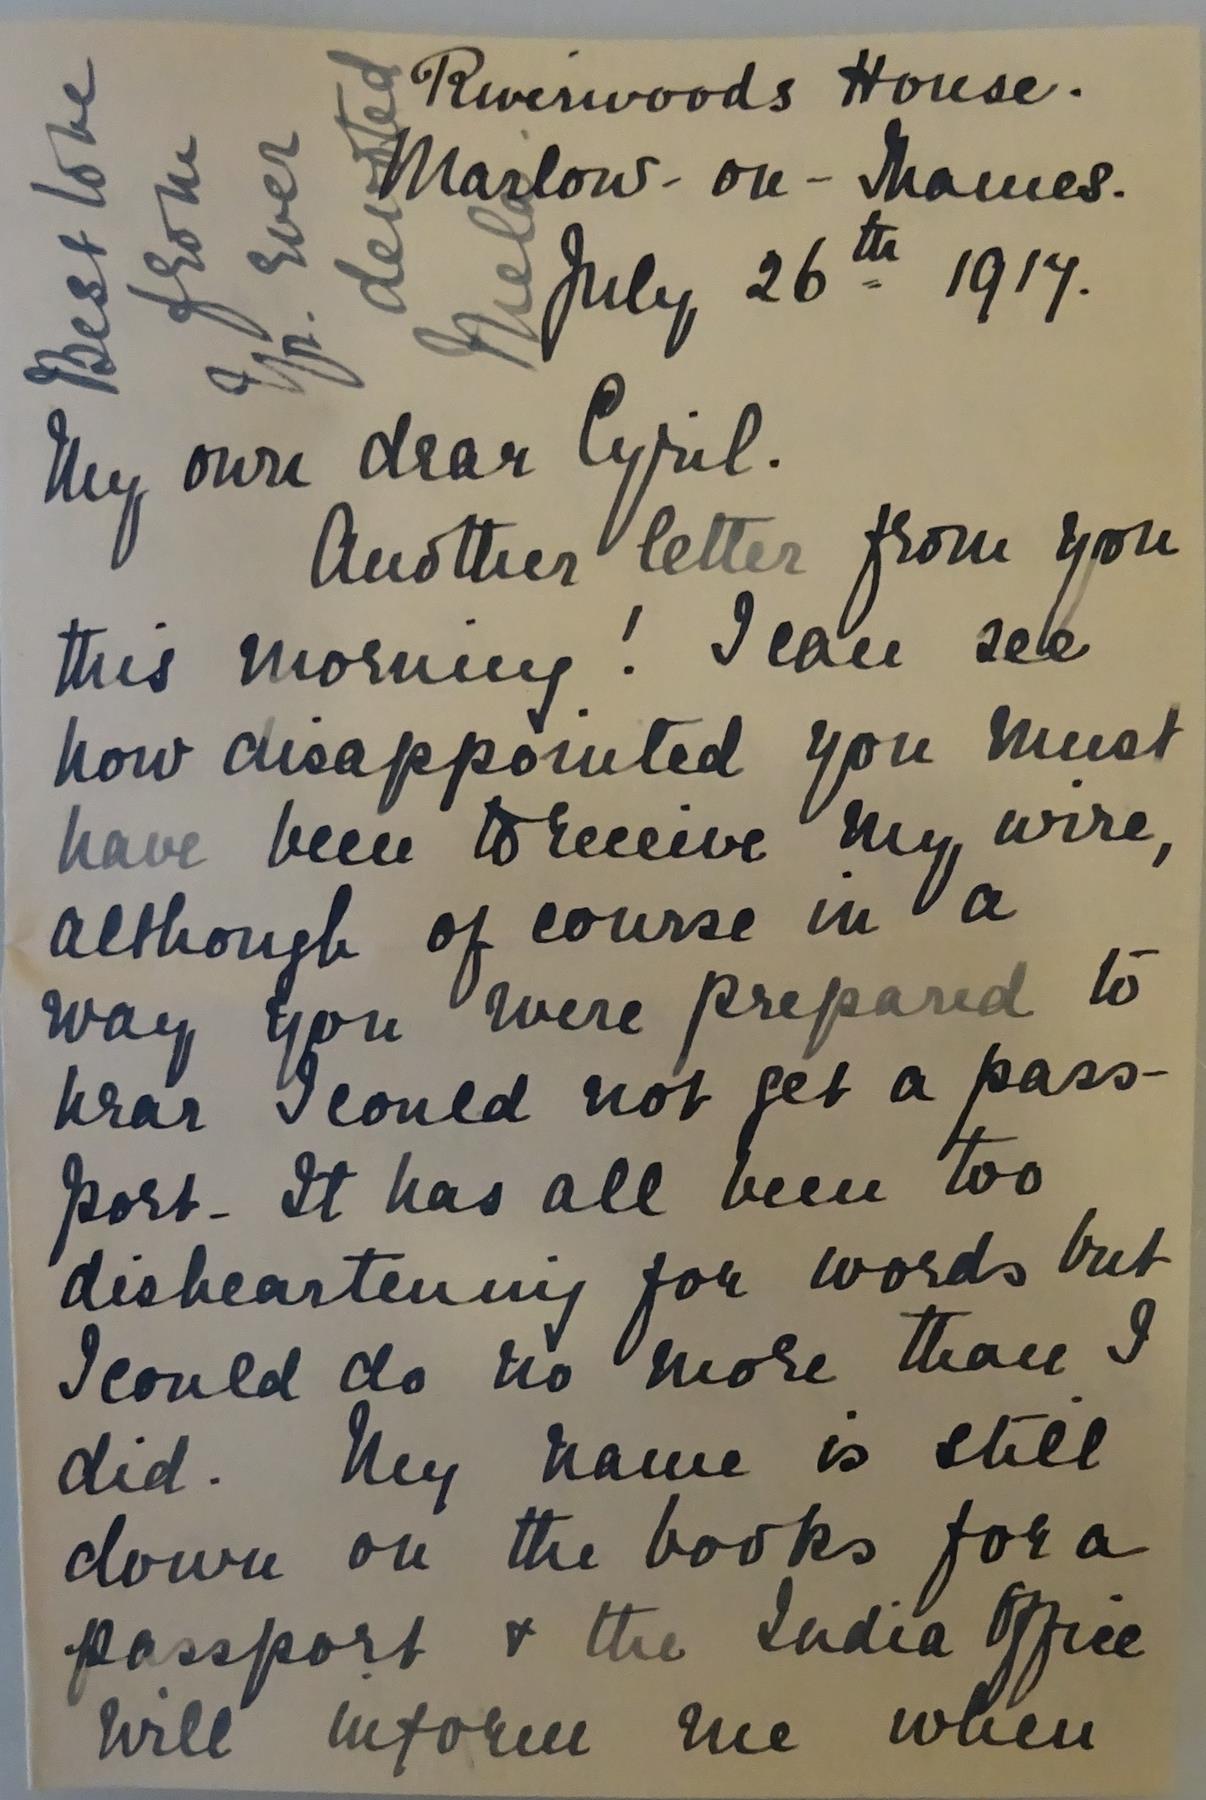 Riverwoods House.
Marlow-on-Thames.
July 26th 1917.
My own dear Cyril.
Another letter from you
this morning! I can see
how disappointed you must
have been to receive my wire,
although of course in a
way you were prepared to
hear I could not get a pass-
port- It has all been too
disheartening for words but
I could do no more than I
did. My name is still
down on the books for a
passport & the India Office
will inform me when
Best love
from
Yr. ever
devoted